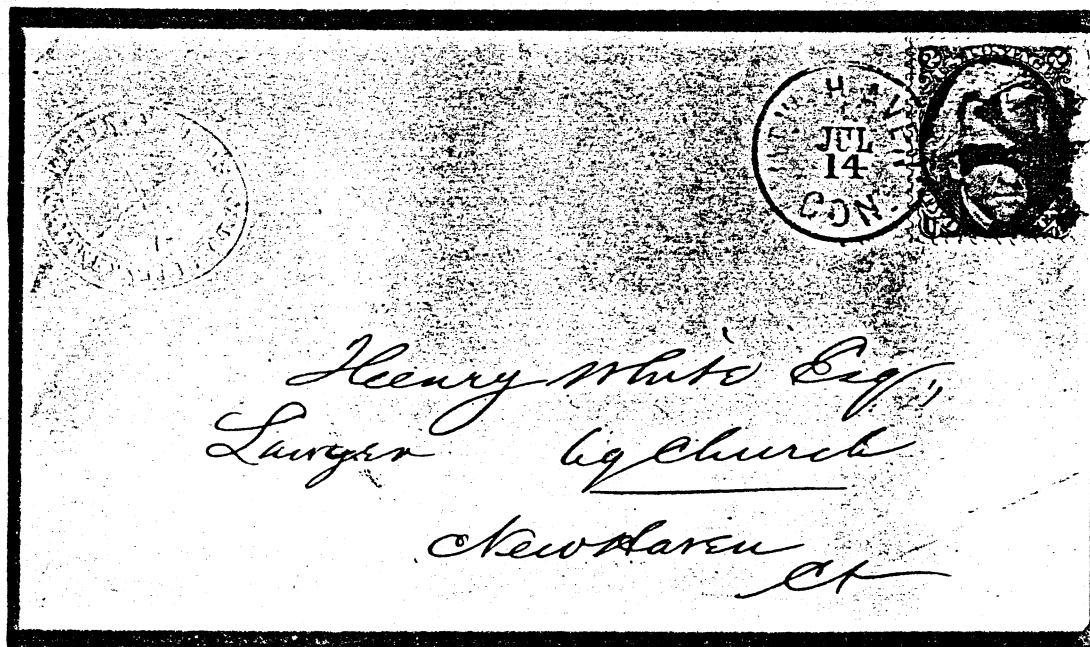 NEW HAVEN
JUL
14
CON.
U.S. POSTAGE
Henry White Esq,
Lawyer 69 Church
New Haven
Ct